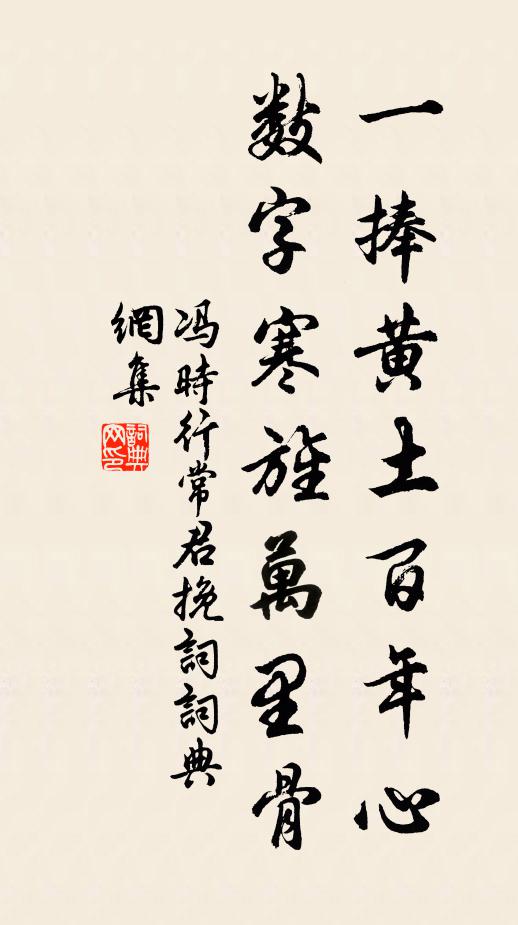 一捧黄土百年心
数字寒旌萬里骨
冯時行常君挽詞詞典
網集
詞典
网印